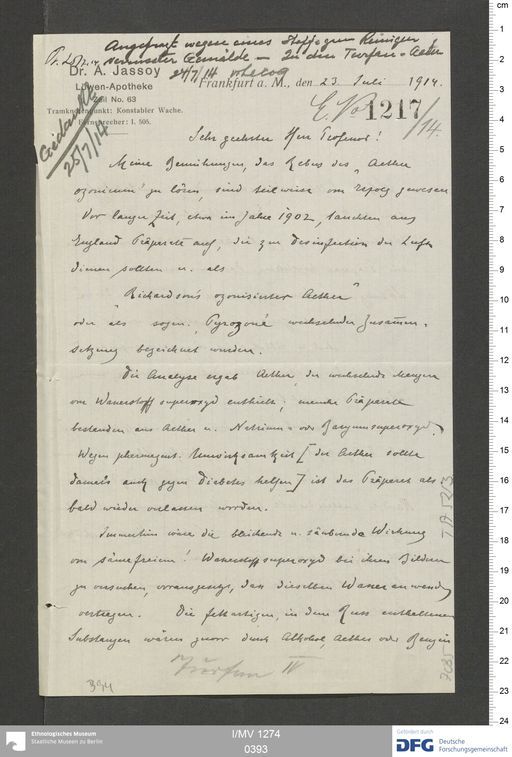 Angefragt wegen eines Stoffes zum Reinigen
verrusster Gemälde — Zu den Turfan-Acten
24/7/14
Dr. A. Jassoy
Löwen-Apotheke
Zeil No. 63
Trambahnhaltepunkt: Konstabler Wache.
Fernsprecher: I. 505.
Frankfurt a. M., den 23. Juli 1914.
E. No 1217/14.
25/7/14
Sehr geehrter Herr Professor!
Meine Bemühungen, das Rebus des "Aether
ozonicum" zu lösen, sind teilweise von Erfolg gewesen
Vor langer Zeit, etwa im Jahre 1902, tauchten aus
England Präparate auf, die zur Desinfection der Luft
dienen sollten u. als
"Richardson's ozonisierter Aether"
oder als sogen. "Pyrozone" wechselnder Zusammen-
setzung bezeichnet wurden.
Die Analyse ergab Aether, der wechselnde Mengen
von Wasserstoffsuperoxyd enthielt; manche Präparate
bestanden aus Aether u. Natrium- oder Baryumsuperoxyd.
Wegen Unwirksamkeit [der Aether sollte
damals auch gegen Diabetes helfen] ist das Präparat als-
bald wieder verlassen worden.
Immerhin wäre die bleichende u. säubernde Wirkung
von säurefreiem! Wasserstoffsuperoxyd bei ihren Bildern
zu versuchen, vorausgesetzt, dass dieselben Wasseranwendg
vertragen. Die fettartigen, in dem Russ enthaltenen
Substanzen wären zuvor durch Alkohol, Aether oder Benzin
Turfan IV
394
Ethnologisches Museum
Staatliche Museen zu Berlin
I/MV 1274
0393
Gefördert durch
DFG Deutsche
Forschungsgemeinschaft